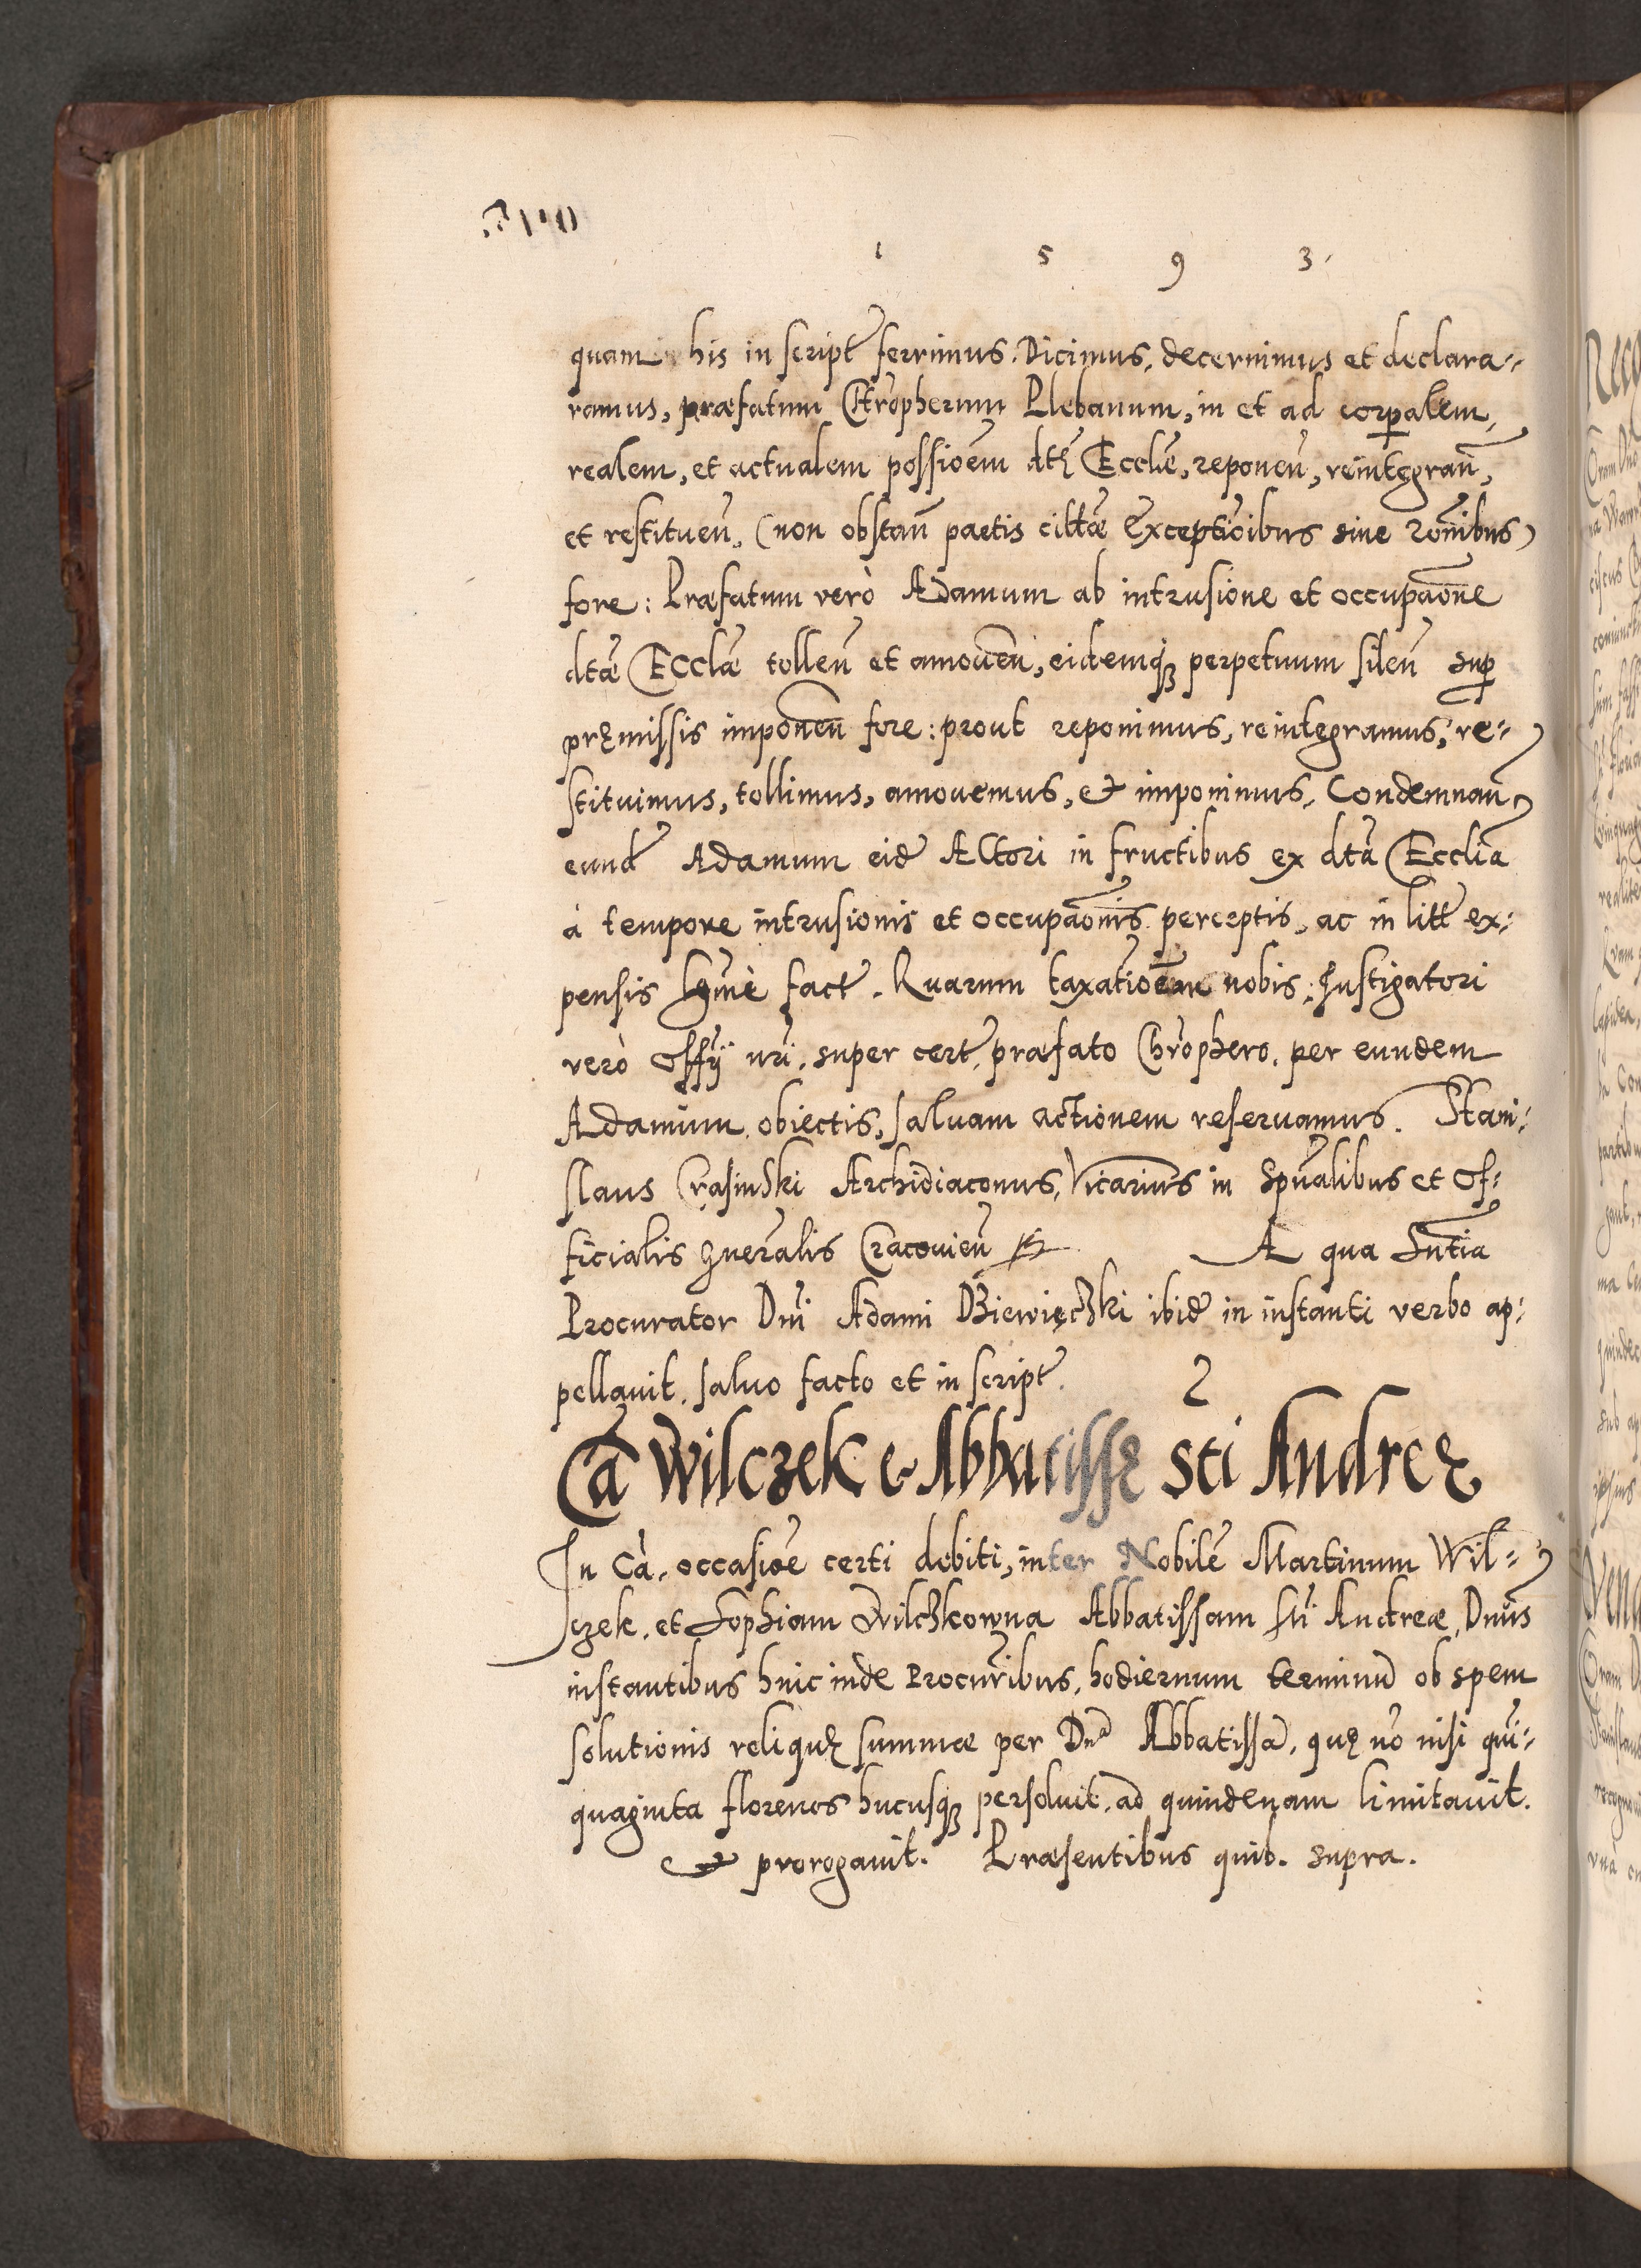 1 5 9 3.
quam his in script ferrimus. Dicimus, decernimus et declara-
ramus, præfatum Chrõpherum Plebanum, in et ad corpalem,
realem, et actualem possioẽm dtę Ecclæ, reponeñ, reintegrañ,
et restitueñ, (non obstañ partis cittæ Exceptioibus siue rõnibus)
fore: Præfatum verò Adamum ab intrusione et occupaõne
dtæ Ecclæ tolleñ et amoueñ, eidemqȝ perpetuum sileñ sup
pręmissis imponeñ fore: prout reponimus, reintegramus, re-
stituimus, tollimus, amouemus, et imponimus, Condemnañ
eund Adamum eid Actori in fructibus ex dtã Ecclia
à tempore intrusionis et occupaõnis perceptis, ac in litt ex-
pensis lgmè fact. Quarum taxatioẽm nobis: Instigatori
verò Offÿ nri, super cert, præfato Chrõphero, per eundem
Adamum obiectis, saluam actionem reseruamus. Stani-
slaus Crasinski Archidiaconus, Vicarius in Spualibus et Of-
ficialis gneralis Cracouieñ A qua Sntia
Procurator Dñi Adami Dziewięczki ibid in instanti verbo ap-
pellauit, saluo facto et in script.
Cã Wilczek et Abbatissę Sti Andreę
In Cã, occasiõe certi debiti, inter Nobilẽ Martinum Wil-
czek, et Sophiam Wilczkowna Abbatissam Sti Andreæ, Dnus
instantibus hinc inde Procuribus, hodiernum terminũ ob spem
solutionis reliquę summæ per Dnã Abbatissã, quę nõ nisi qui-
quaginta florenos hucusqȝ persoluit, ad quindenam limitauit.
et prorogauit. Præsentibus quib. supra.